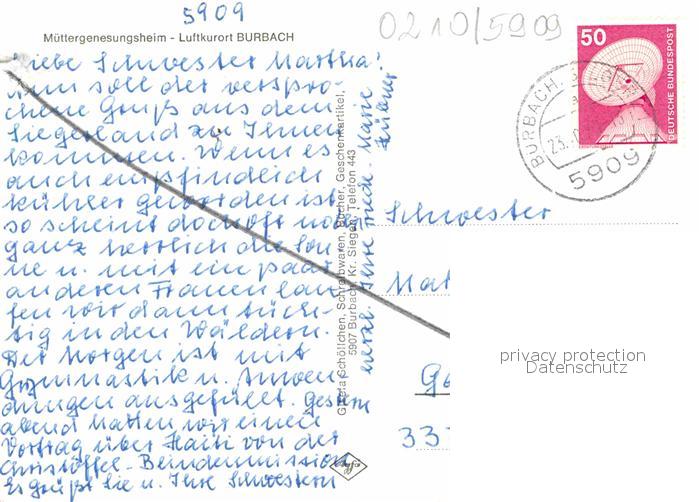 5909
0210/5909
Müttergenesungsheim - Luftkurort BURBACH
50
DEUTSCHE BUNDESPOST
BURBACH
23.
5909
Liebe Schwester Martha!
Nun soll der verspro-
chene Gruß aus dem
Siegerland zu Ihnen
kommen. Wenn es
auch empfindlich
kühler geworden ist
so scheint doch oft noch
ganz herrlich die Son-
ne u. mit ein paar
anderen Frauen lau-
fen wir dann tüch-
tig in den Wäldern.
Der Morgen ist mit
Gymnastik u. Anwen-
dungen ausgefüllt. Gestern
abend hatten wir einen
Vortrag über Haiti von der
Christoffel-Blindenmission
Es grüßt Sie u. Ihre Schwestern
herzl. Ihre Marie
Gisela Schöllchen, Schreibwaren, Bücher, Geschenkartikel,
5907 Burbach, Kr. Siegen, Telefon 443
Schwester
Mat
Ge
33
privacy protection
Datenschutz
Agfa